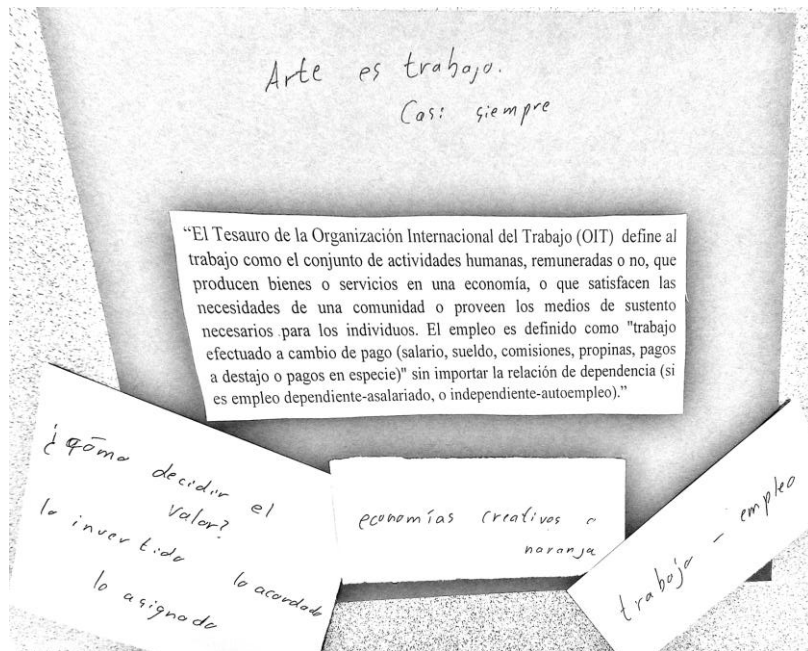 Arte es trabajo.
Casi siempre
“El Tesauro de la Organización Internacional del Trabajo (OIT) define al
trabajo como el conjunto de actividades humanas, remuneradas o no, que
producen bienes o servicios en una economía, o que satisfacen las
necesidades de una comunidad o proveen los medios de sustento
necesarios para los individuos. El empleo es definido como "trabajo
efectuado a cambio de pago (salario, sueldo, comisiones, propinas, pagos
a destajo o pagos en especie)" sin importar la relación de dependencia (si
es empleo dependiente-asalariado, o independiente-autoempleo).”
¿Cómo decidir el
valor?
lo invertido
lo acordado
lo asignado
economías creativas o
naranja
trabajo - empleo